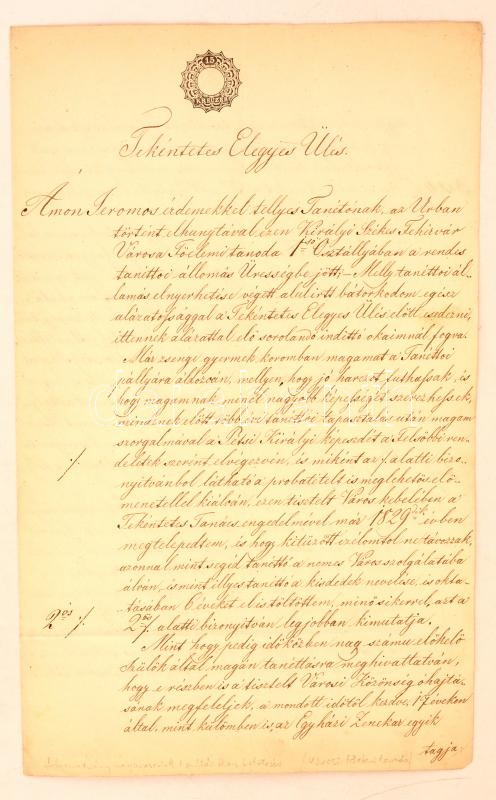 15
KREUZER
Tekéntetes Elegyes Ülés.
Ámon Jeromos érdemekkel tellyes Tanítónak, az Urban
történt elhunytával ezen Királyi Székes Fehérvár
Városa Főelemi tanoda 1ső Osztállyában a rendes
tanittoi állomás Üreségbe jött; – Melly tanittroi ál-
lamás elnyerhetése végett alulirtt bátorkodom egész
alázatossággal a Tekéntetes Elegyes Ülés előtt esedezni,
ittennek alázattal elő sorolandó indittó okaimnál fogva.
Már zsenge gyermek koromban magamat a Tanittoi
pállyára áldozván, mellyen, hogy jó harczot futhassak, és
hogy magamnak menél nagyobb képességet szerezhessek,
mindenek előtt több évi tanittoi tapasztalás után magam
szorgalmával a Pesti Királyi képezdét a Felsőbbi ren-
deletek szerint elvégezvén, és miként az /. alatti bizo-
nyitványból látható a probatételt is meglehetős elő-
menetellel kiálván, ezen tisztelt Város kebelében a
Tekéntetes Tanács engedelmével már 1829dik évben
megtelepedtem, és hogy kitüzött czélomtol ne távozzak,
azonnal mint segéd tanittó a nemes Város szolgálatába
álván, és mint illyes tanittó a kisdedek nevelése, is okta-
tásában 6 éveket el is töltöttem, minő sikerrel, azt a
2dos /. alatti bizonyitván legjobban kimutatja.
Mint hogy pedig idő közben nagy számu előkelő
szülök által magán tanittásra meghivattatván,
hogy e részben is a tisztelt Városi Közönség ohajtá-
sának megfeleljek, a mondott időtől kezdve, 17 éveken
által, mint külömben is, az Egyházi Zenekar egyik
tagja
/.
2dos /.